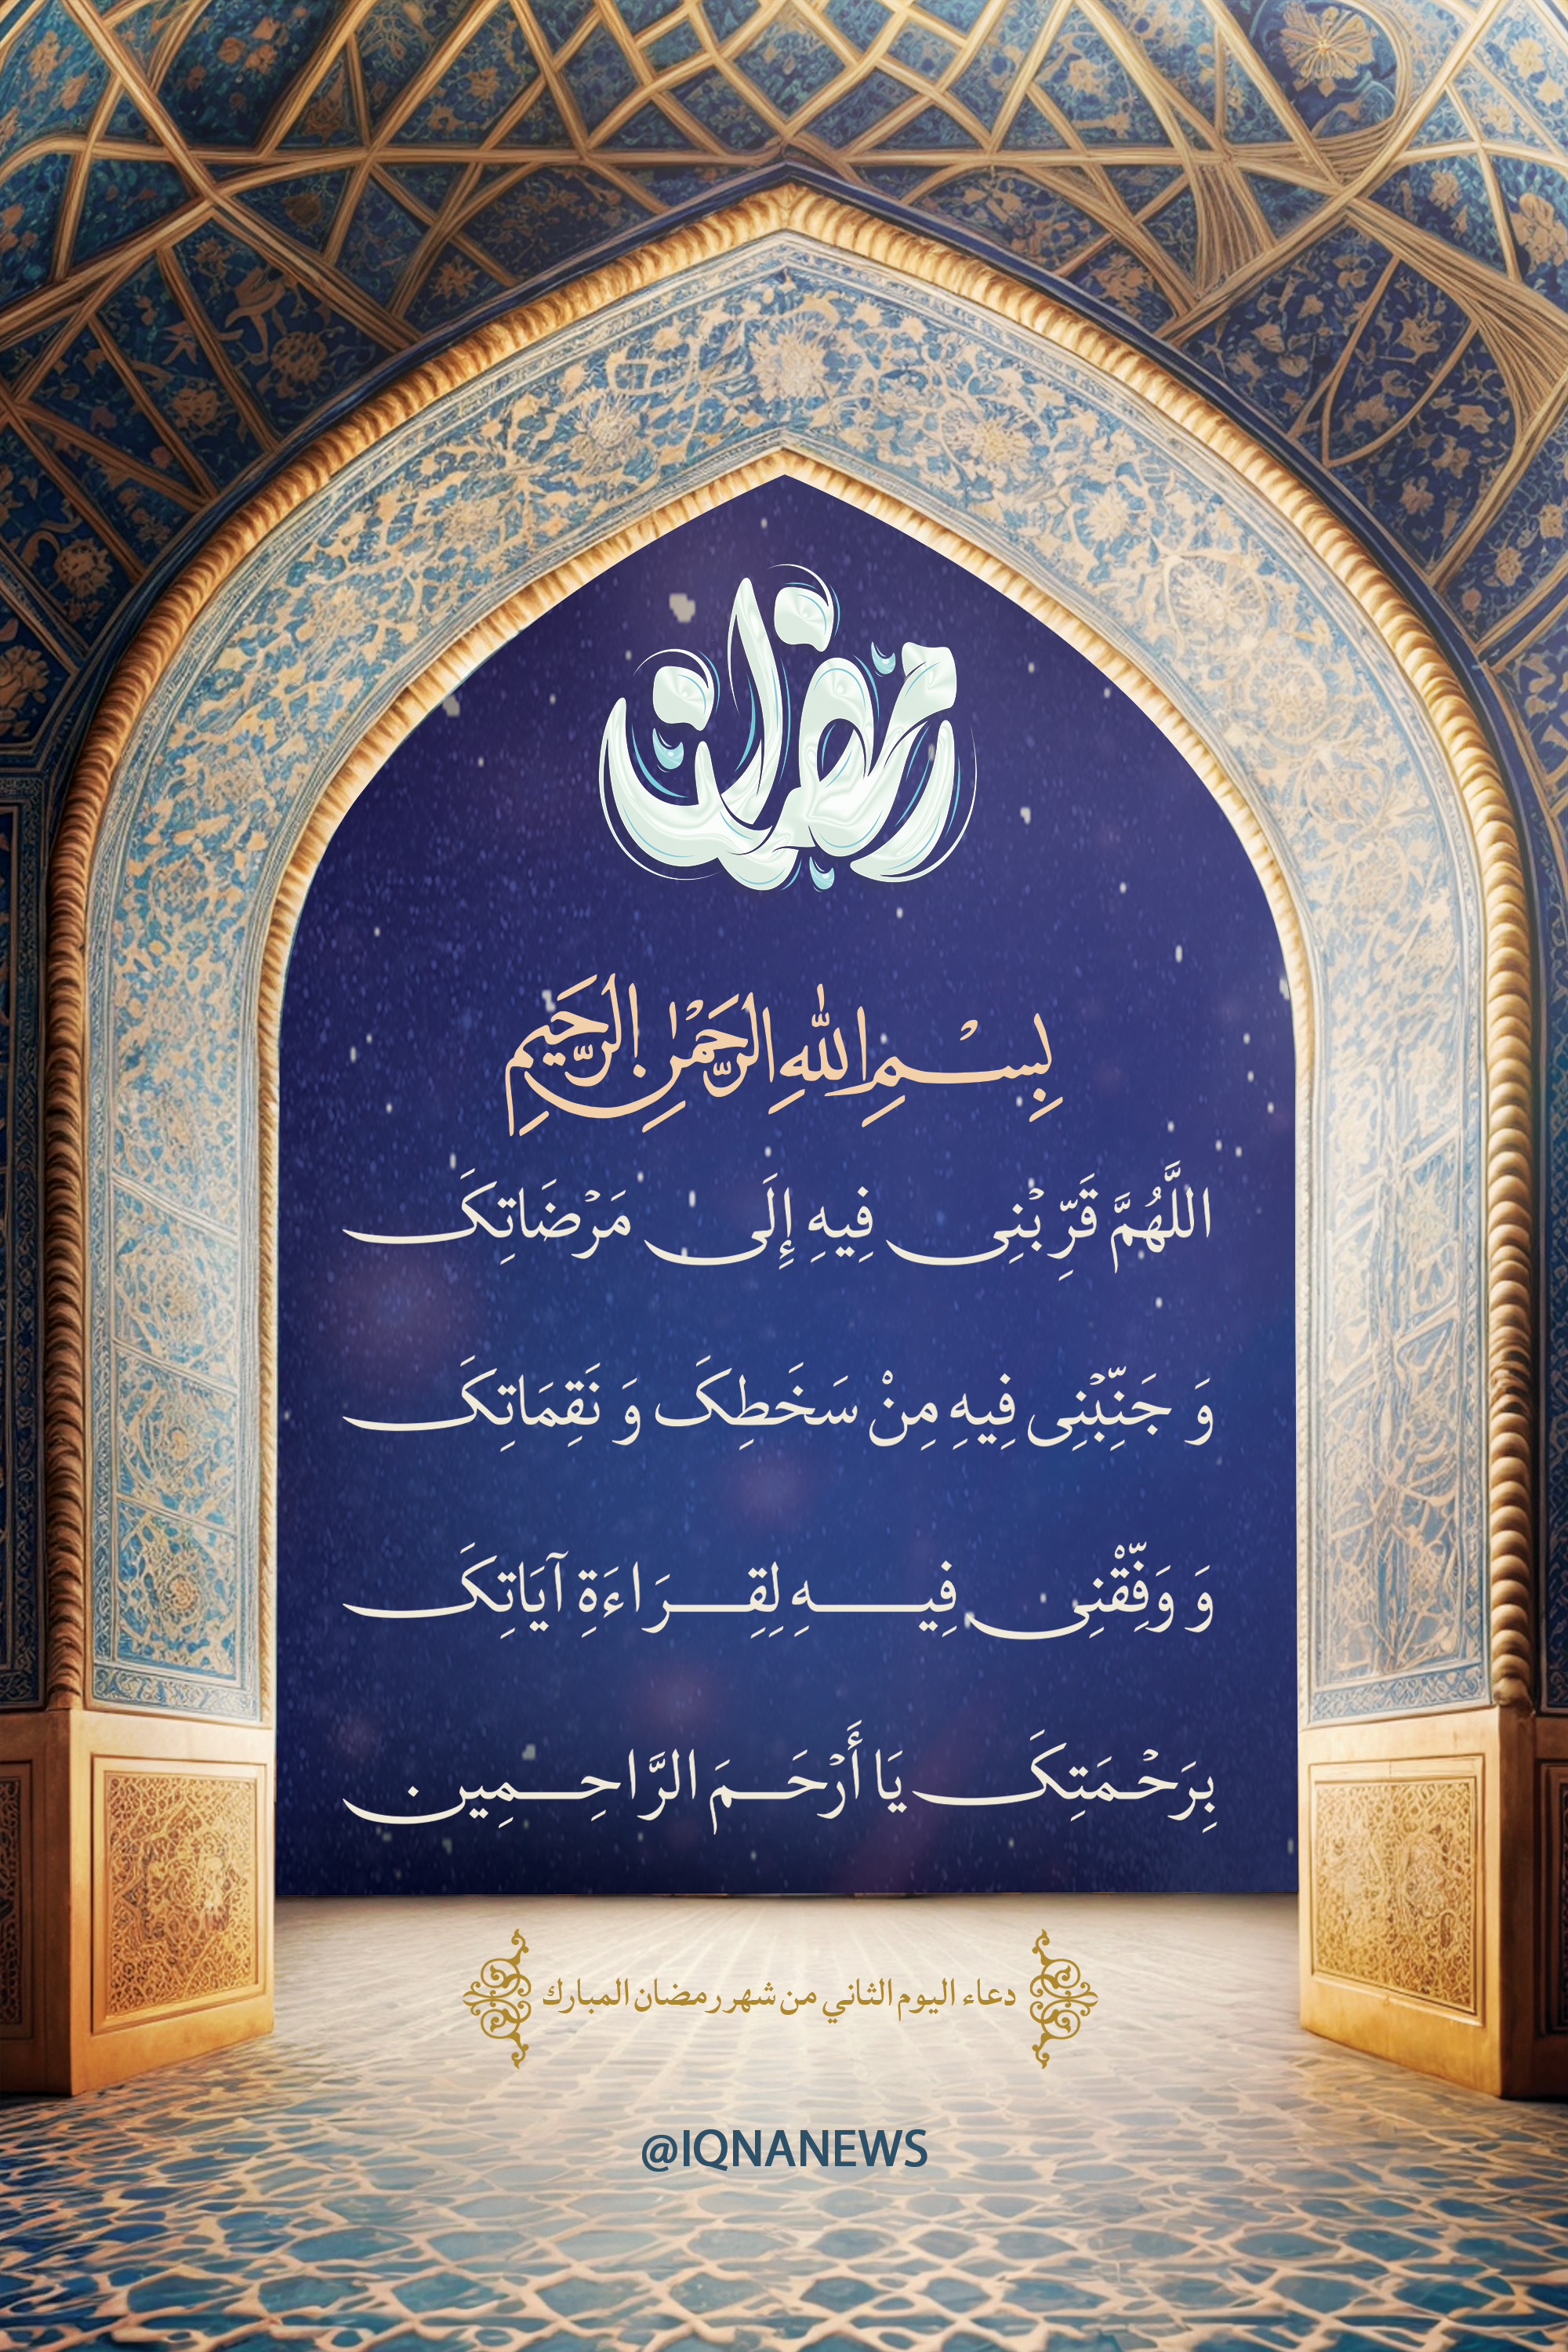 رمضان
بِسْمِ اللهِ الرَّحْمٰنِ الرَّحِيمِ
اللَّهُمَّ قَرِّبْنِی فِيهِ إِلَى مَرْضَاتِکَ
وَ جَنِّبْنِی فِيهِ مِنْ سَخَطِکَ وَ نَقِمَاتِکَ
وَ وَفِّقْنِی فِيـهِ لِقِـرَاءَةِ آيَاتِکَ
بِرَحْمَتِکَ يَا أَرْحَمَ الرَّاحِـمِين.
دعاء اليوم الثاني من شهر رمضان المبارك
@IQNANEWS